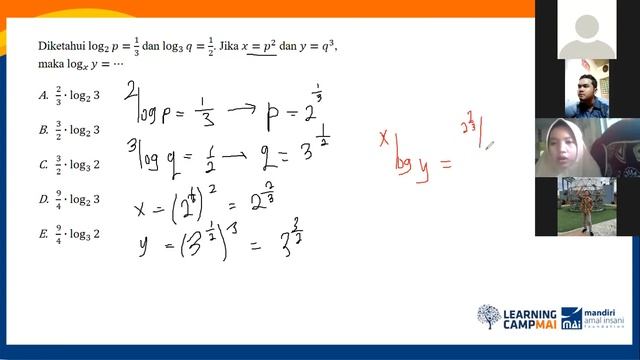 Diketahui log₂ p = 1/3 dan log₃ q = 1/2. Jika x = p² dan y = q³,
maka logₓ y = ⋯
A. 2/3 · log₂ 3
B. 3/2 · log₂ 3
C. 3/2 · log₃ 2
D. 9/4 · log₂ 3
E. 9/4 · log₃ 2
²log p = 1/3 → p = 2^(1/3)
³log q = 1/2 → q = 3^(1/2)
x = (2^(1/3))² = 2^(2/3)
y = (3^(1/2))³ = 3^(3/2)
ˣlog y = 2^(2/3)
LEARNING
CAMPMAI
MAI
mandiri
amal insani
foundation